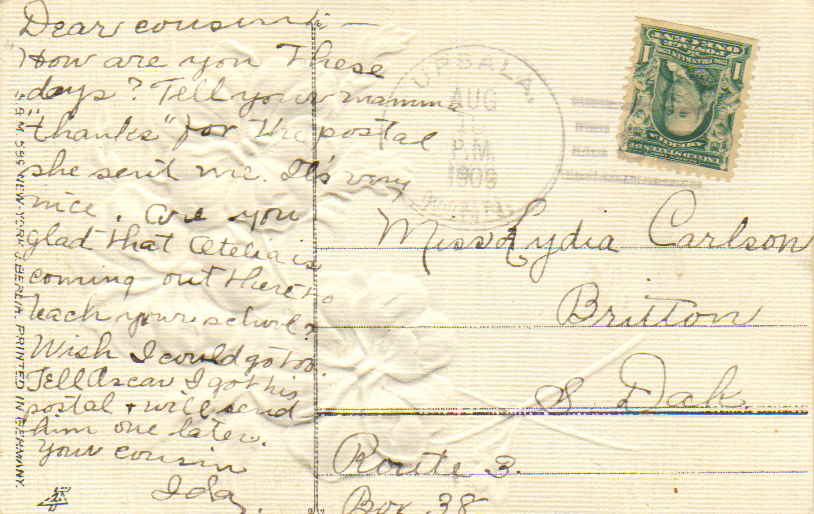 Dear cousin:-
How are you these
days? Tell your mamma
"thanks" for the postal
she sent me. It's very
nice. Are you
glad that Otelia is
coming out there to
teach your school?
Wish I could go too.
Tell Oscar I got his
postal + will send
him one later.
Your cousin
Ida.
UPSALA,
AUG
P.M.
MINN.
Miss Lydia Carlson
Britton
S Dak.
Route 3.
Box 38
NEW-YORK BERLIN. PRINTED IN GERMANY.